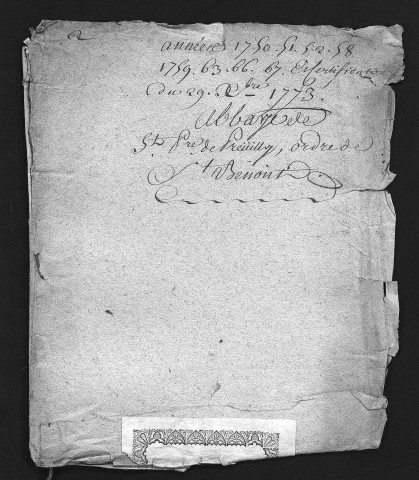 2
années 1750. 51. 52. 58
1759. 63. 66. 67. Et certificat
du 29. Xbre 1773.
Abbaye de
St. Pre. de Preüilly, ordre de
St Benoit